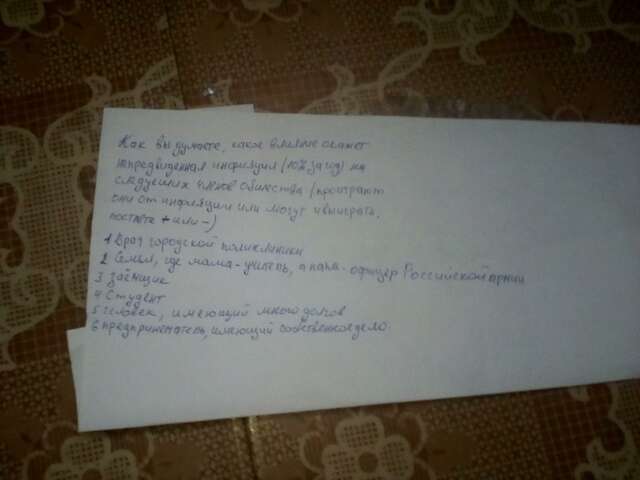 Как вы думаете, какое влияние окажет
непредвиденная инфляция (10% за год) на
следующих членов общества (проиграют
они от инфляции или могут выиграть,
поставте + или -)
1 Врач городской поликлиники
2 Семья, где мама - учитель, а папа - офицер Российской армии
3 Заёмщик
4 Студент
5 Человек, имеющий много долгов
6 предприниматель, имеющий собственное дело.